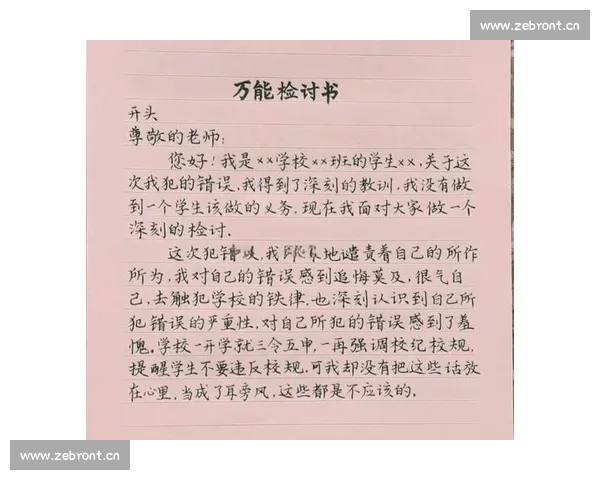 www.zebront.cn
万能检讨书
开头
尊敬的老师:
您好!我是××学校××班的学生××,关于这
次我犯的错误,我得到了深刻的教训,我没有做
到一个学生该做的义务,现在我面对大家做一个
深刻的检讨.
这次犯错,我地谴责着自己的所作
所为,我对自己的错误感到追悔莫及,很气自
己,去触犯学校的铁律,也深刻认识到自己所
犯错误的严重性,对自己所犯的错误感到了羞
愧.学校一开学就三令五申,一再强调校纪校规,
提醒学生不要违反校规,可我却没有把这些话放
在心里,当成了耳旁风,这些都是不应该的.
www.zebront.cn